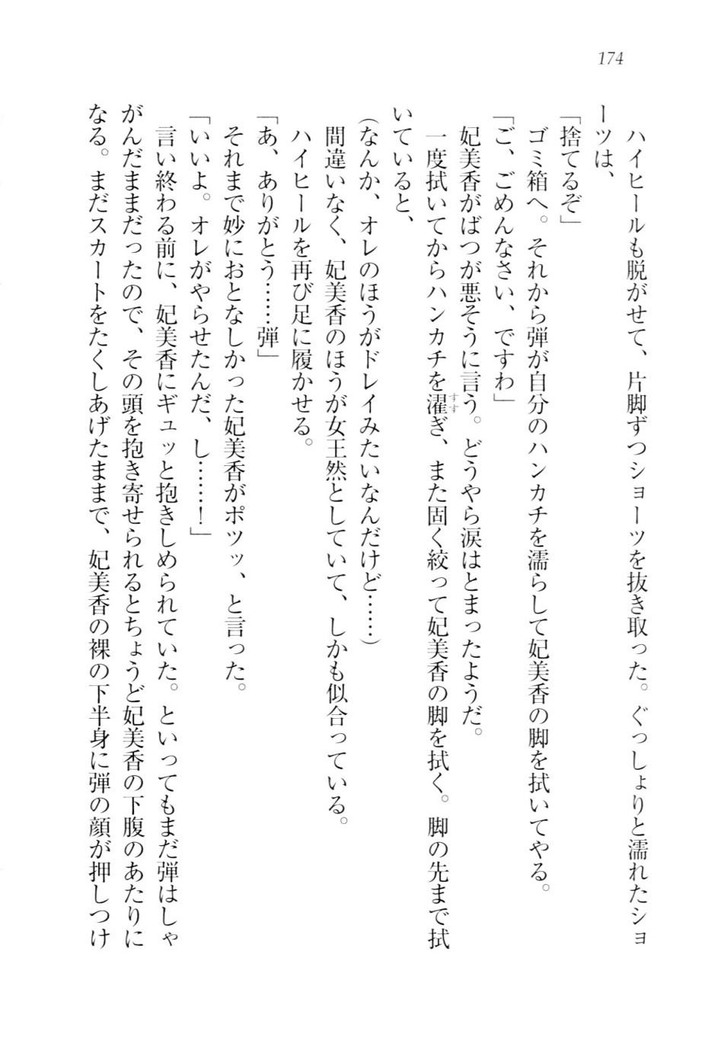 174
ハイヒールも脱がせて、片脚ずつショーツを抜き取った。ぐっしょりと濡れたショ
ーツは、
「捨てるぞ」
ゴミ箱へ。それから弾が自分のハンカチを濡らして妃美香の脚を拭いてやる。
「ご、ごめんなさい、ですわ」
妃美香がばつが悪そうに言う。どうやら涙はとまったようだ。
一度拭いてからハンカチを濯ぎ、また固く絞って妃美香の脚を拭く。脚の先まで拭
すす
いていると、
(なんか、オレのほうがドレイみたいなんだけど……)
間違いなく、妃美香のほうが女王然としていて、しかも似合っている。
ハイヒールを再び足に履かせる。
「あ、ありがとう……弾」
それまで妙におとなしかった妃美香がポツッ、と言った。
「いいよ。オレがやらせたんだ、し……!」
言い終わる前に、妃美香にギュッと抱きしめられていた。といってもまだ弾はしゃ
がんだままだったので、その頭を抱き寄せられるとちょうど妃美香の下腹のあたりに
なる。まだスカートをたくしあげたままで、妃美香の裸の下半身に弾の顔が押しつけ